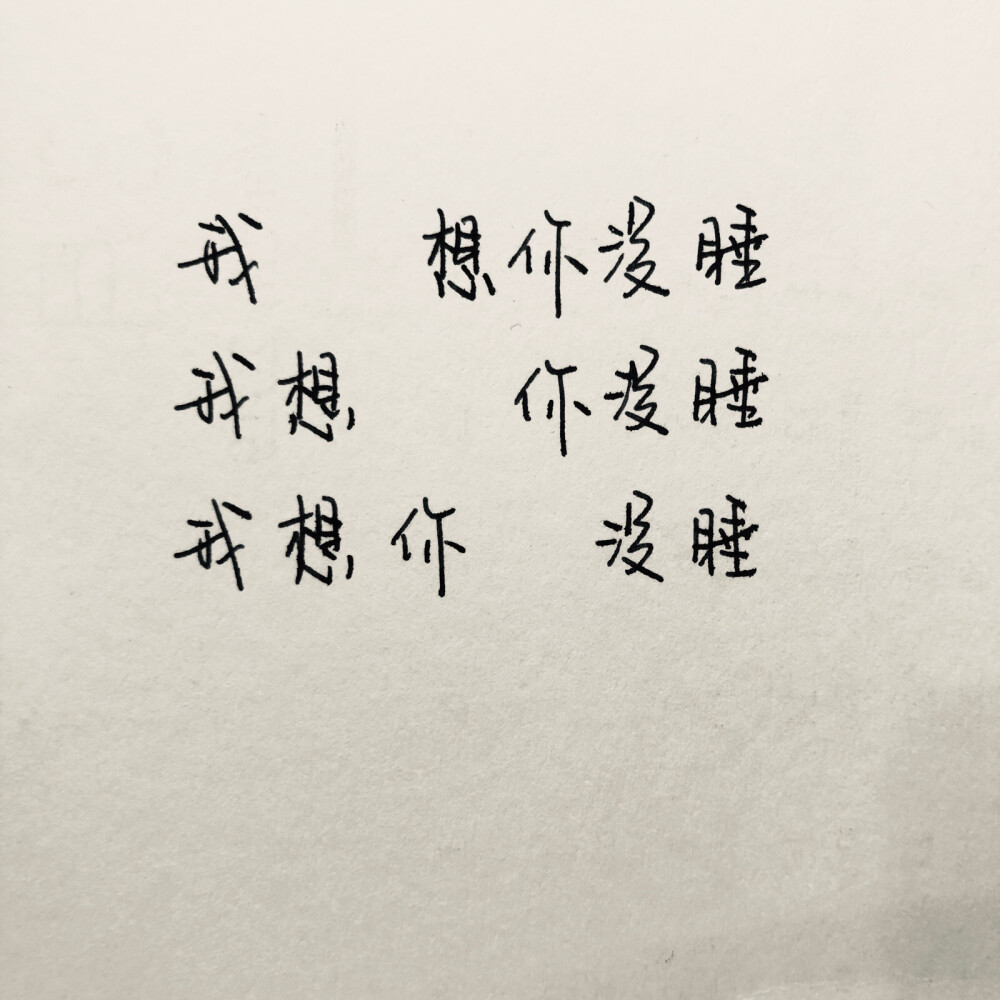 我 想你没睡
我想 你没睡
我想你 没睡